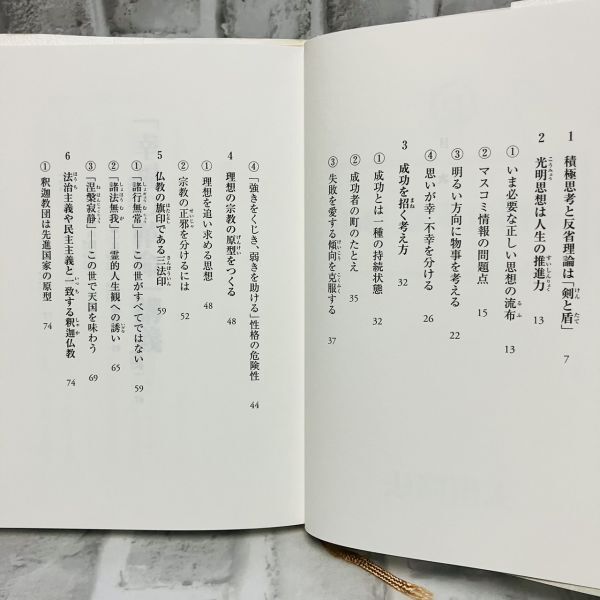 1 積極思考と反省理論は「剣と盾」 7
2 光明思想は人生の推進力 13
① いま必要な正しい思想の流布 13
② マスコミ情報の問題点 15
③ 明るい方向に物事を考える 22
④ 思いが幸・不幸を分ける 26
3 成功を招く考え方 32
① 成功とは一種の持続状態 32
② 成功者の町のたとえ 35
③ 失敗を愛する傾向を克服する 37
④ 「強きをくじき、弱きを助ける」性格の危険性 44
4 理想の宗教の原型をつくる 48
① 理想を追い求める思想 48
② 宗教の正邪を分けるには 52
5 仏教の旗印である三法印 59
① 「諸行無常」――この世がすべてではない 59
② 「諸法無我」――霊的人生観への誘い 65
③ 「涅槃寂静」――この世で天国を味わう 69
6 法治主義や民主主義と一致する釈迦仏教 74
① 釈迦教団は先進国家の原型 74